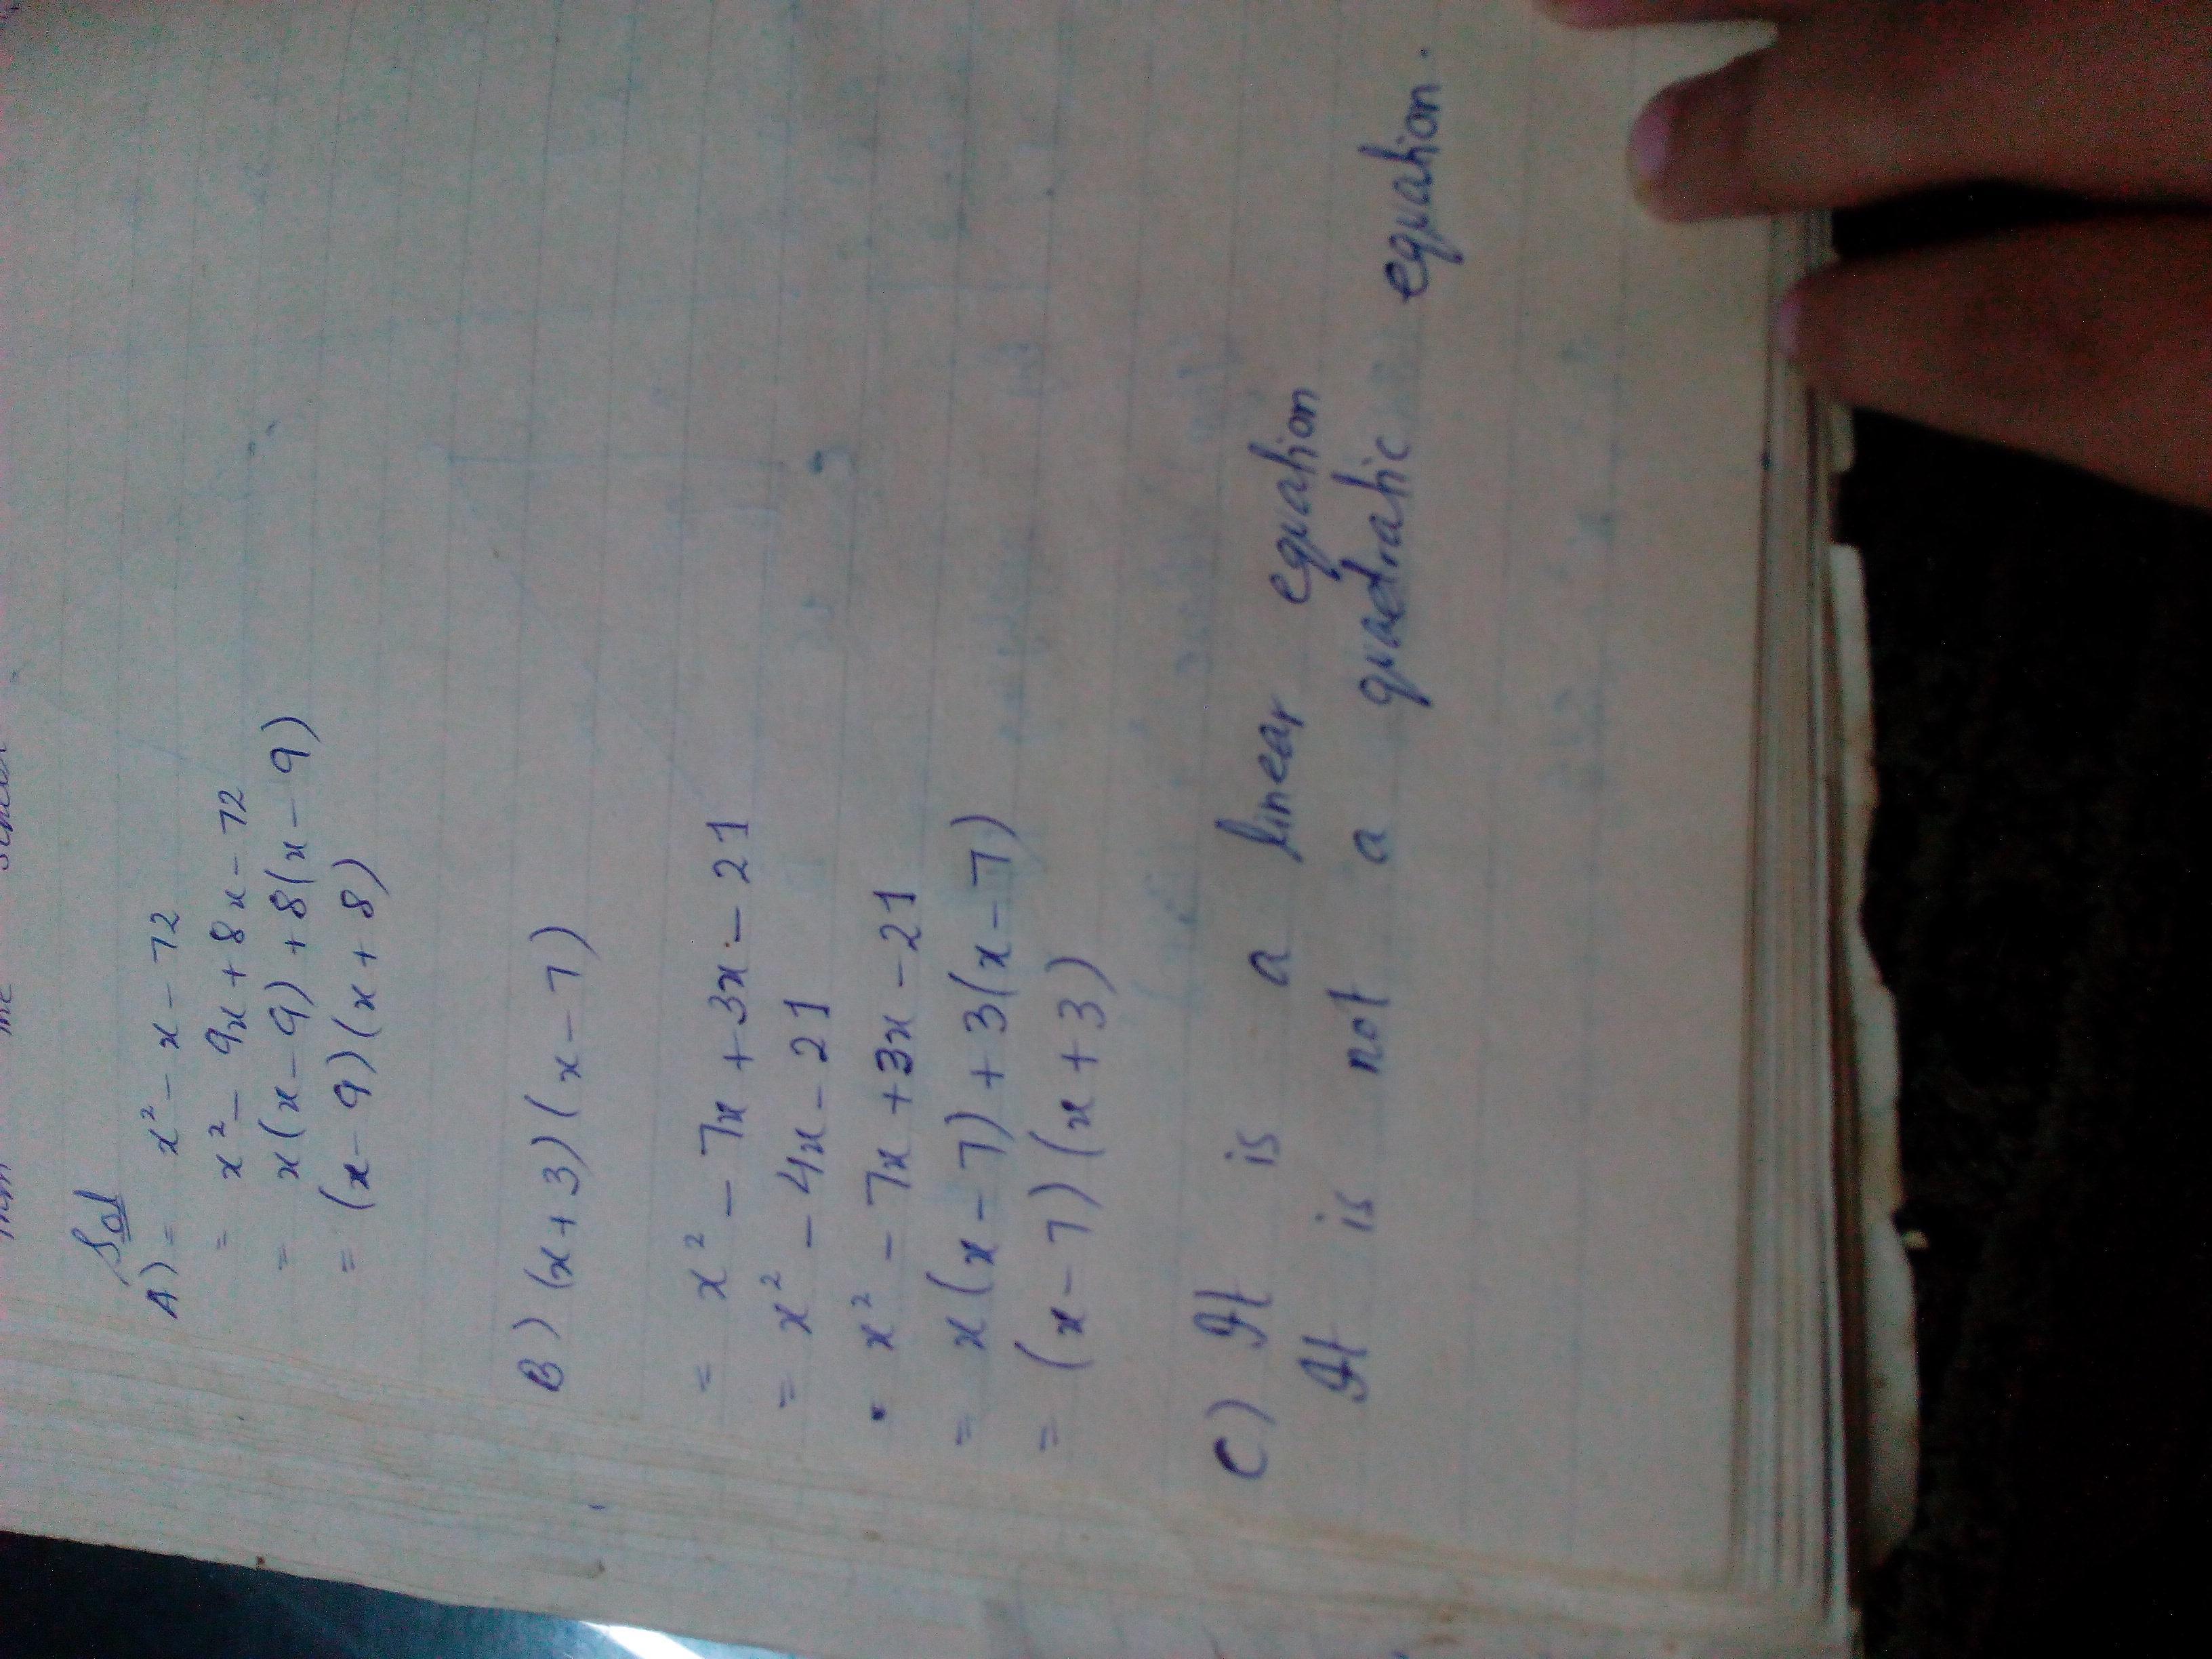 Sol
A) = x² - x - 72
= x² - 9x + 8x - 72
= x(x - 9) + 8(x - 9)
= (x - 9)(x + 8)
B) (x + 3)(x - 7)
= x² - 7x + 3x - 21
= x² - 4x - 21
x² - 7x + 3x - 21
= x(x - 7) + 3(x - 7)
= (x - 7)(x + 3)
C) It is a linear equation
It is not a quadratic equation.